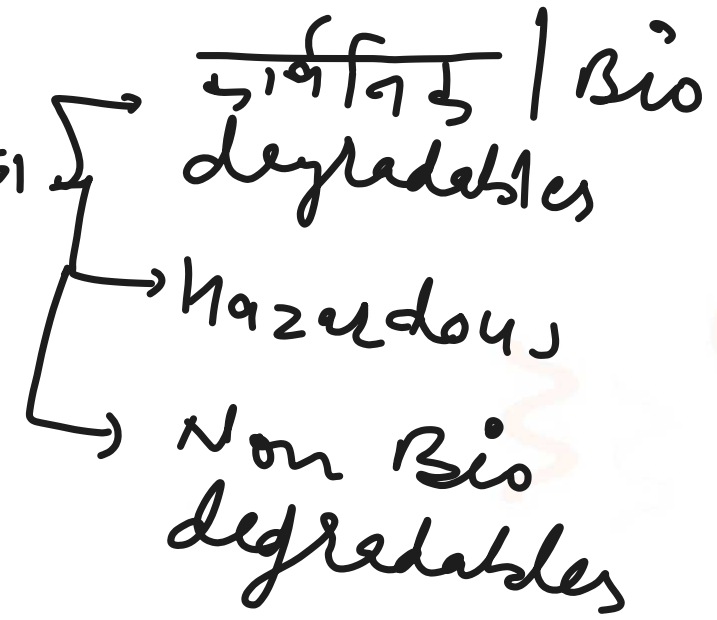 | Bio
degradables
Hazardous
Non Bio
degradables